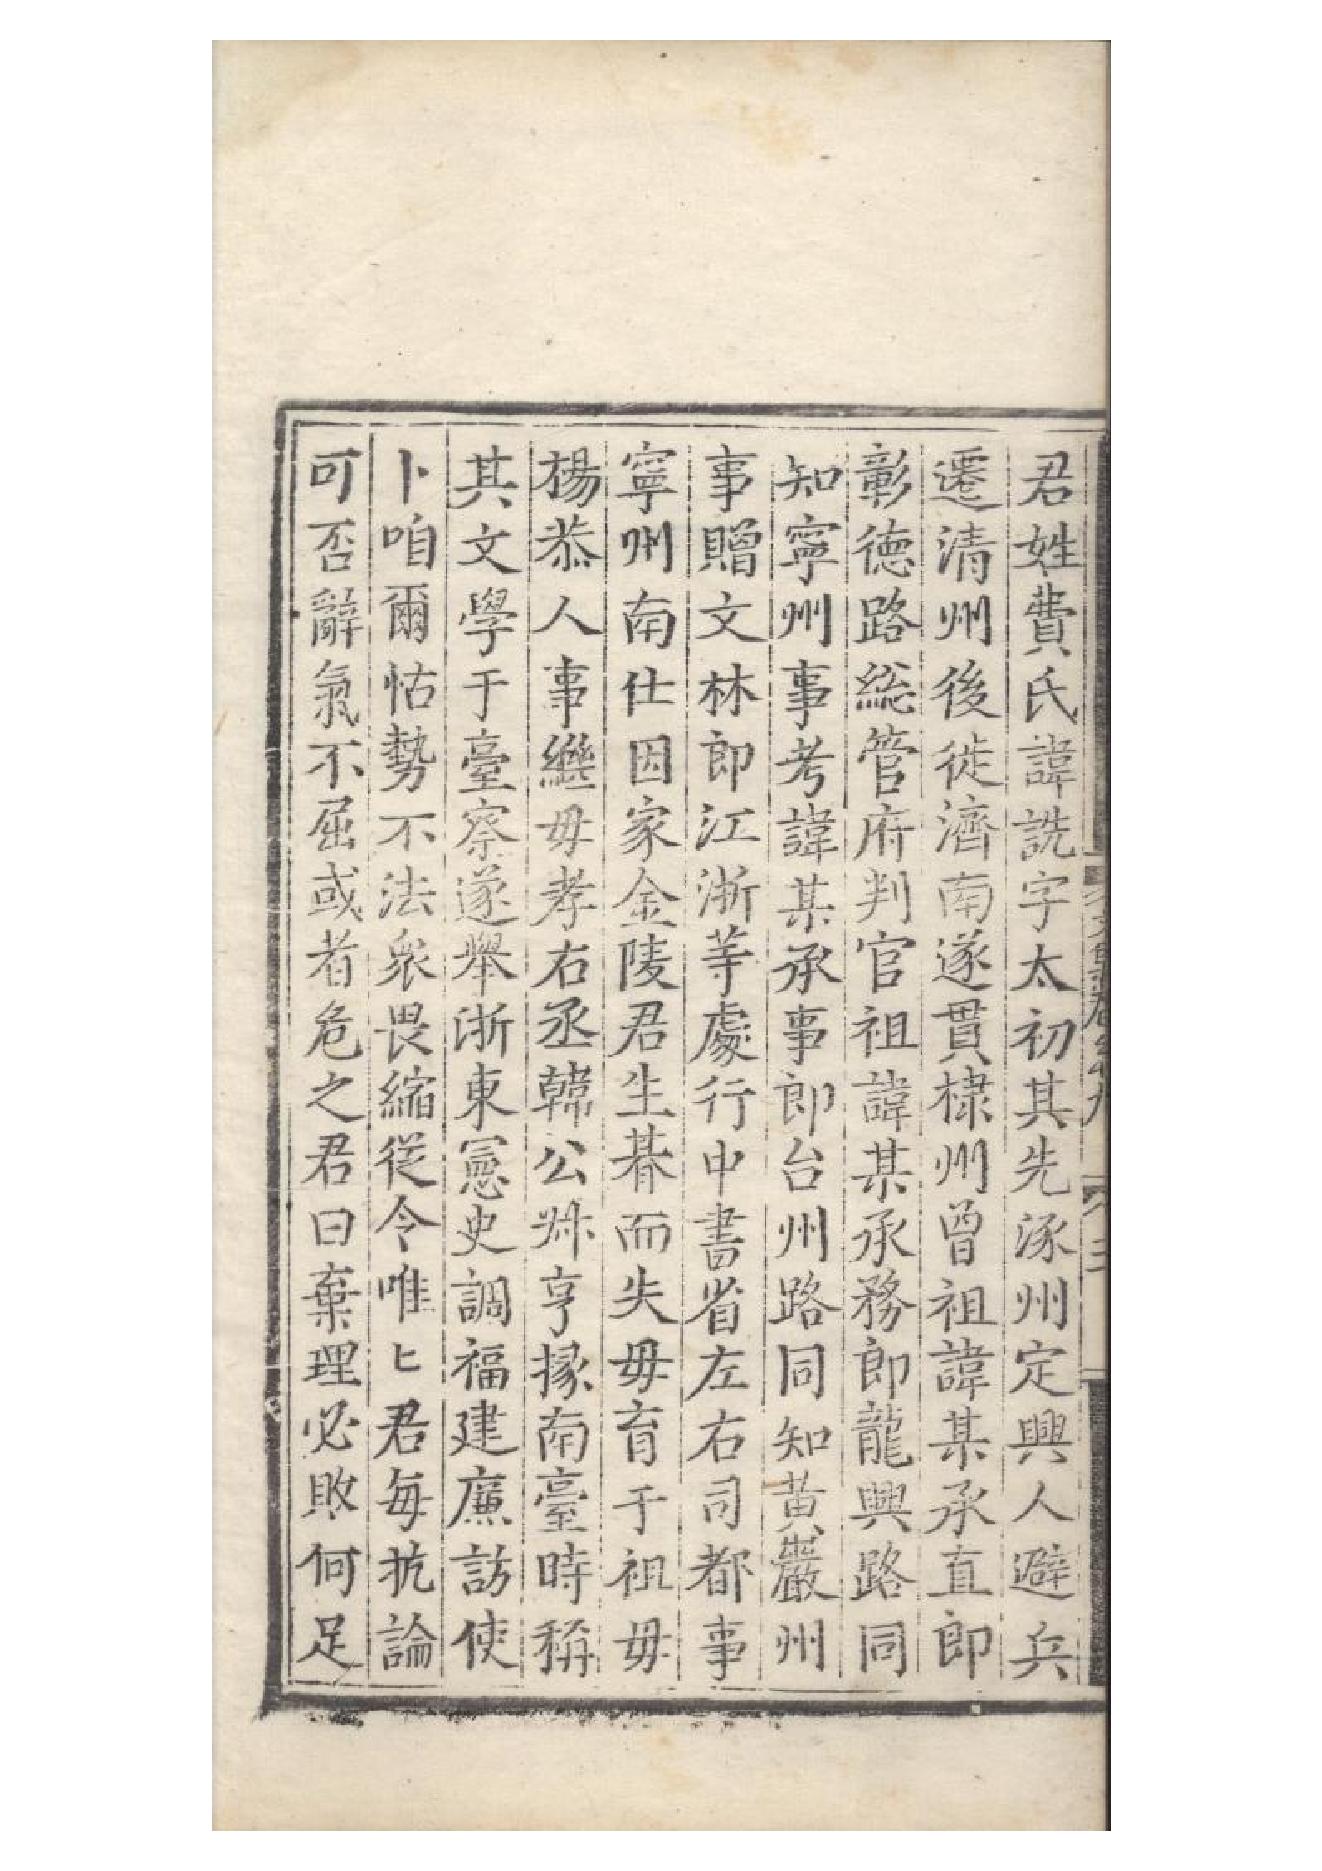 君姓費氏諱詵字太初其先涿州定興人避兵
遷清州後徙濟南遂貫棣州曾祖諱某承直郎
彰德路総管府判官祖諱某承務郎龍興路同
知寧州事考諱某承事郎台州路同知黄巖州
事贈文林郎江浙等處行中書省左右司都事
寧州南仕因家金陵君生朞而失毋育于祖毋
楊恭人事繼毋孝右丞韓公㳙亨掾南臺時稱
其文學于臺察遂舉浙東憲史調福建廉訪使
卜咱爾怙勢不法衆畏縮從令唯〻君每抗論
可否辭氣不屈或者危之君曰棄理必敗何足